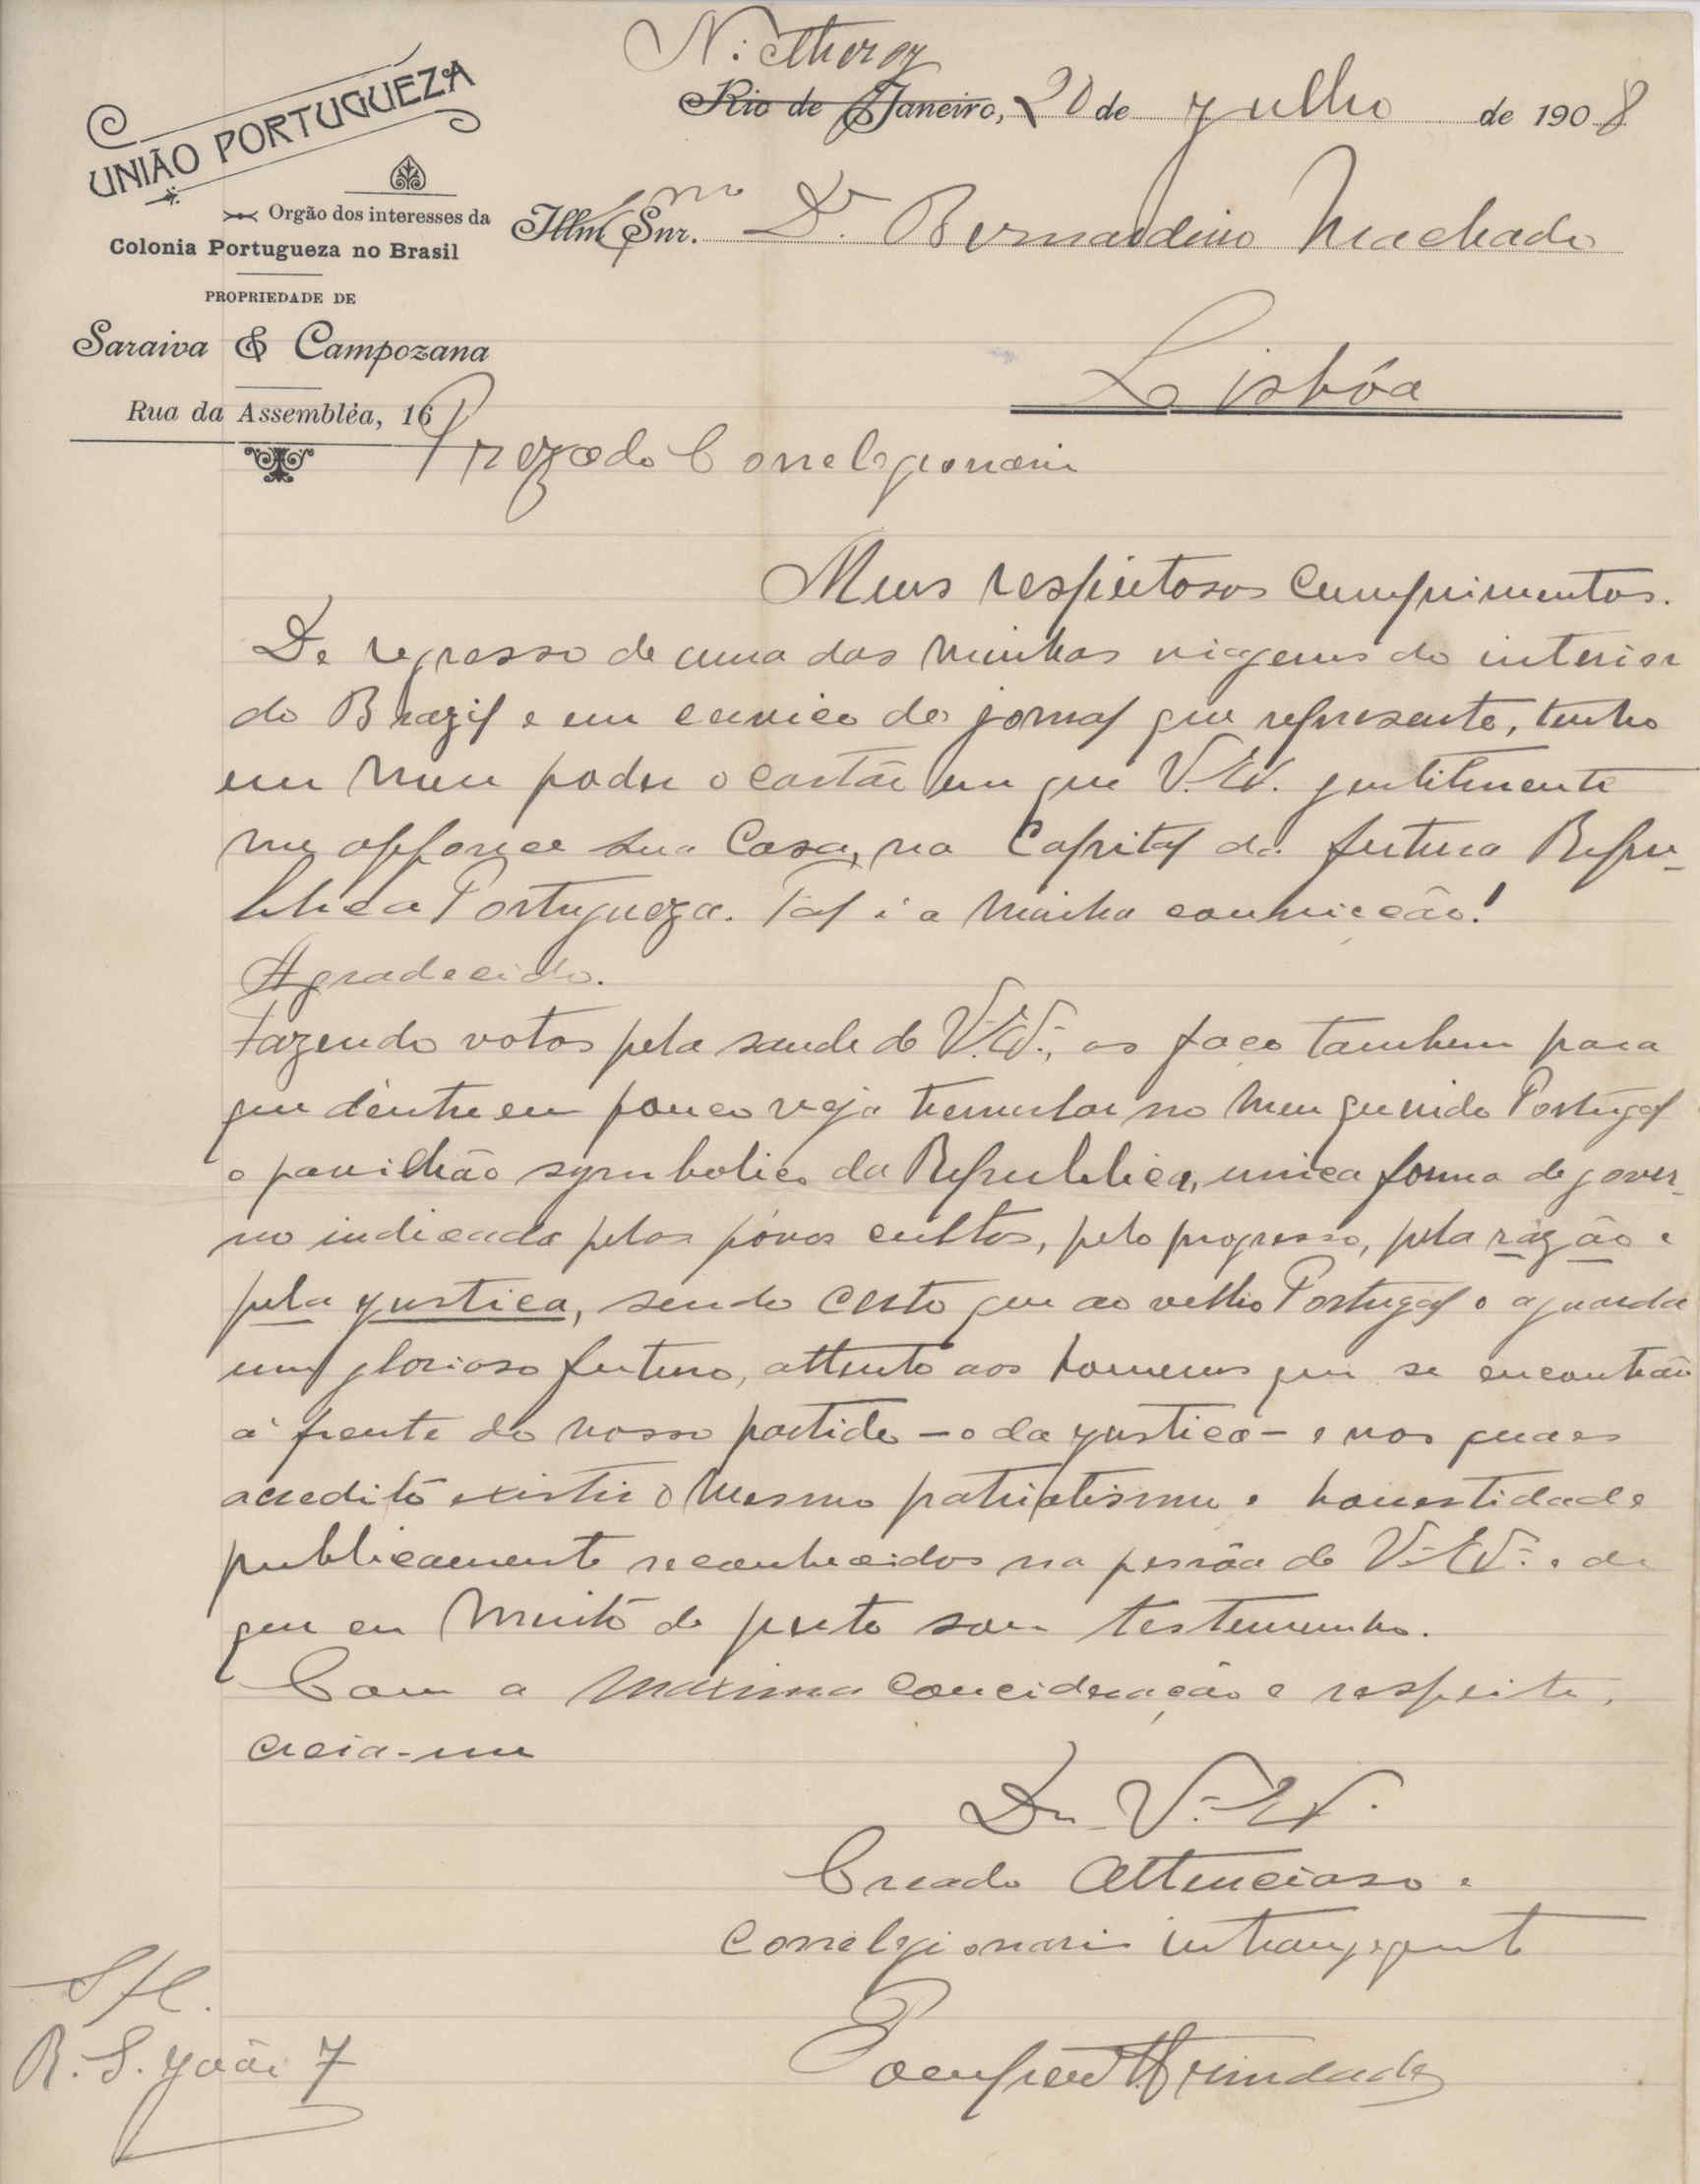 UNIÃO PORTUGUEZA
Orgão dos interesses da
Colonia Portugueza no Brasil
PROPRIEDADE DE
Saraiva & Campozana
Rua da Assembléa, 16
Nitheroy
Rio de Janeiro, 20 de julho de 1908
Illmo Snr. Dr. Bernardino Machado
Lisbôa
Prezado Correlegionario
Meus respeitosos cumprimentos.
De regresso de uma das minhas viagens do interior
do Brazil e em serviço do jornal que represento, tenho
em meu poder o cartão em que V. Ex. gentilmente
me offerece sua Casa, na Capital da futura Repu-
blica Portugueza. Tal é a minha convicção!
Agradecido.
Fazendo votos pela saude de V. Ex., os faço tambem para
que dentre em pouco veja tremular no meu querido Portugal
o pavilhão symbolico da Republica, unica forma de gover-
no indicada pelos póvos cultos, pelo progresso, pela razão e
pela justica, sendo certo que ao velho Portugal o aguarda
um glorioso futuro, attento aos homens que se encontrão
á frente do nosso partido - o da justica - e nos quaes
acredito existir o mesmo patriotismo e honestidade
publicamente reconhecidos na pessôa de V. Ex. e de
que eu muito de perto sou testemunho.
Com a maxima concideração e respeito,
creia-me
De V. Ex.
Creado attencioso e
correlegionario intransigente
Trindade
S/C.
R. S. João 7